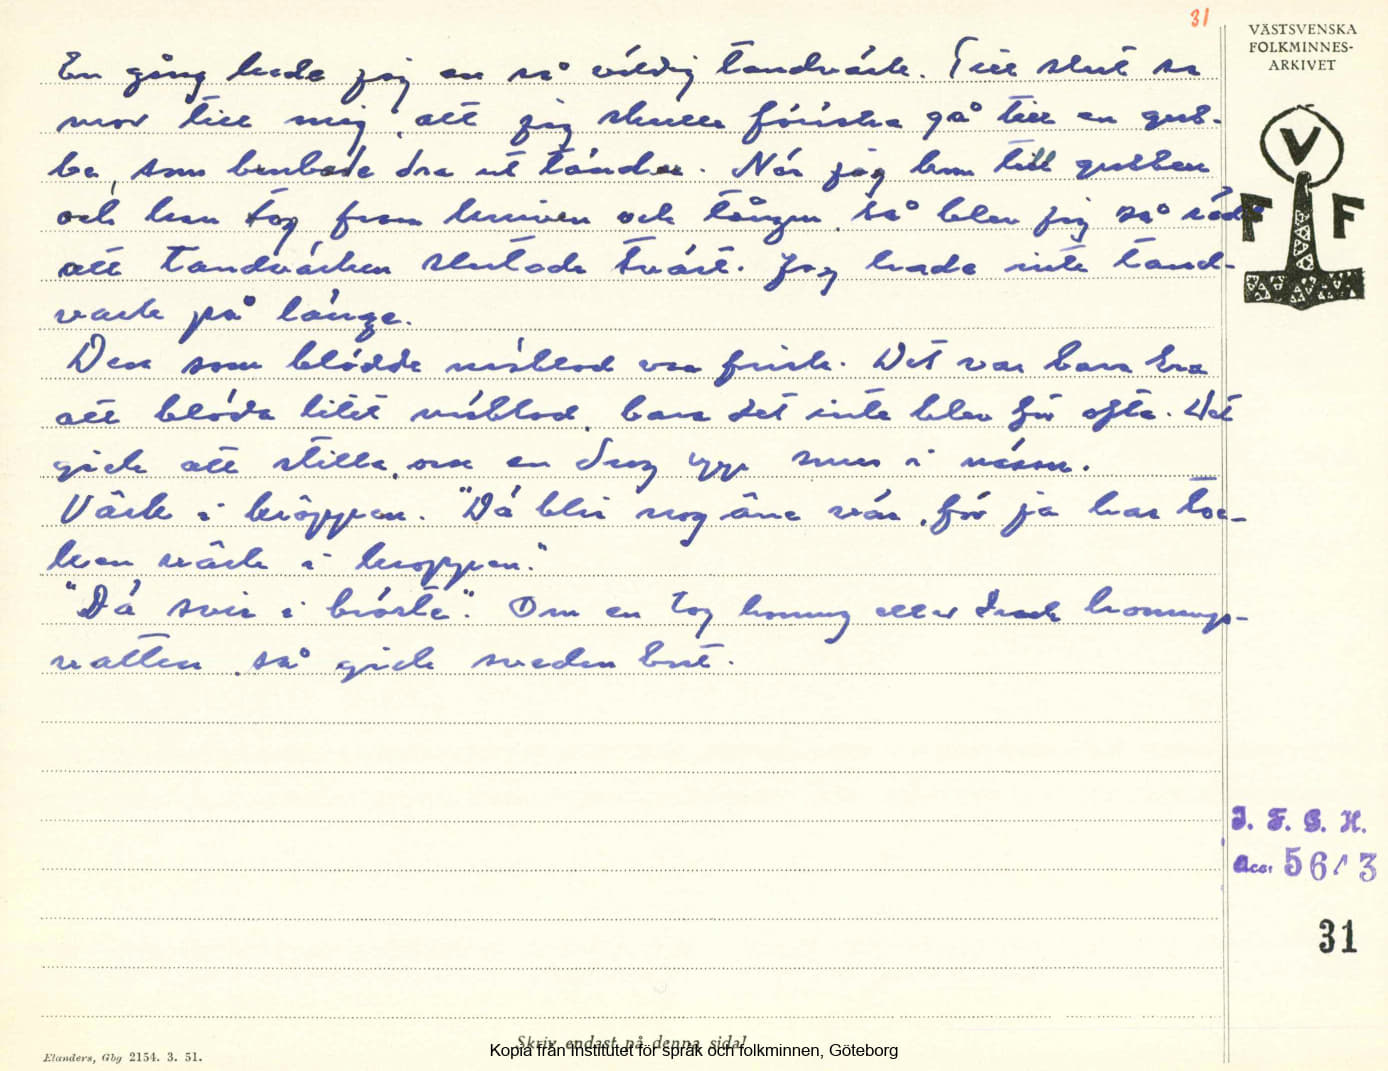 31
VÄSTSVENSKA
FOLKMINNES-
ARKIVET
En gång hade jag en så väldig tandvärk. Till slut sa
mor till mig, att jag skulle försöka gå till en gub-
be, som brukade dra ut tänder. När jag kom till gubben
och han tog fram kniven och tången, så blev jag så rädd
att tandvärken slutade tvärt. Jag hade inte tand-
värk på länge.
Den som blödde näsblod var frisk. Det var bara bra
att blöda litet näsblod, bara det inte blev för ofta. Det
gick att stilla, om en drog upp snus i näsan.
Värk i kroppen. "Dä blir nog äne vär, för ja har
värk i kroppen."
"Dä svir i bröste". Om en tog honung eller drack honungs-
vatten, så gick sveden bort.
V
F F
I. F. G. H.
Acc. 5613
31
Skriv endast på denna sida!
Kopia från Institutet för språk och folkminnen, Göteborg
Elanders, Gbg 2154. 3. 51.